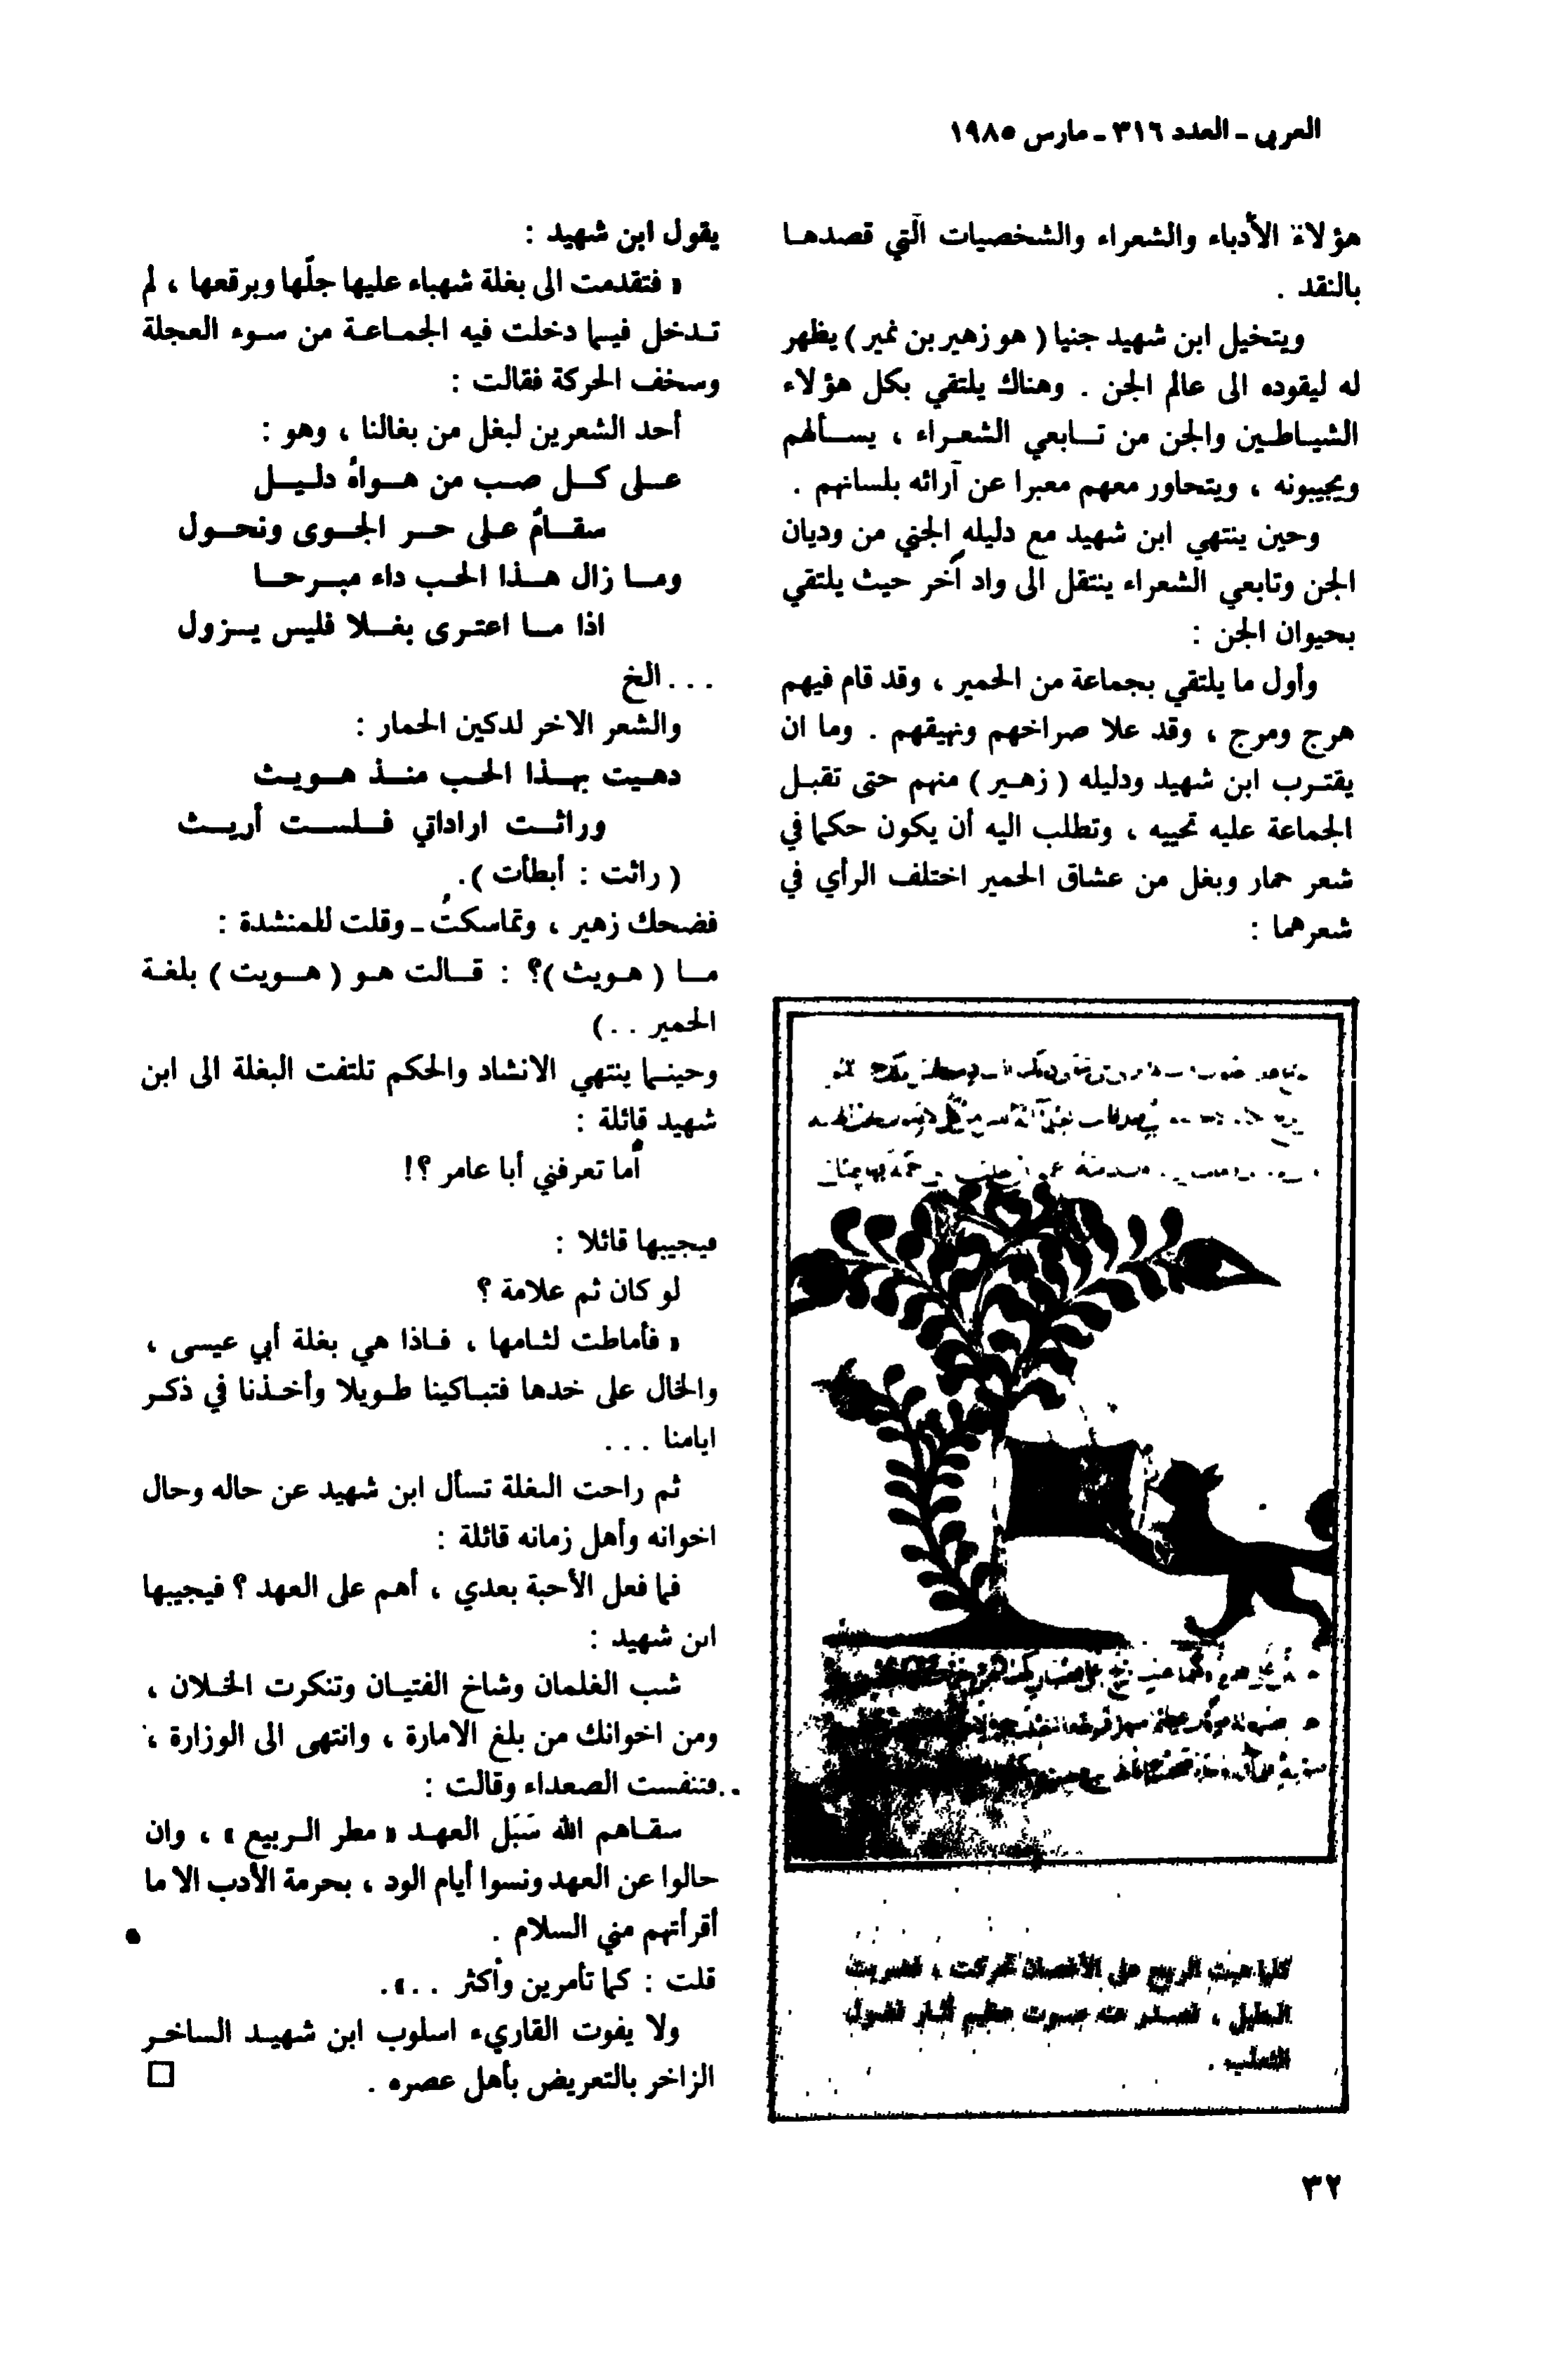 العربي - العدد ٣١٦ - مارس ١٩٨٥
هؤلاء الأدباء والشعراء والشخصيات التي قصدها
بالنقد .
ويتخيل ابن شهيد جنيا ( هو زهير بن نمير ) يظهر
له ليقوده الى عالم الجن . وهناك يلتقي بكل هؤلاء
الشياطين والجن من تابعي الشعراء ، يسألهم
ويجيبونه ، ويتحاور معهم معبرا عن آرائه بلسانهم .
وحين ينتهي ابن شهيد مع دليله الجني من وديان
الجن وتابعي الشعراء ينتقل الى واد آخر حيث يلتقي
بحيوان الجن :
وأول ما يلتقي بجماعة من الحمير ، وقد قام فيهم
هرج ومرج ، وقد علا صراخهم ونهيقهم . وما ان
يقترب ابن شهيد ودليله ( زهير ) منهم حتى تقبل
الجماعة عليه تحييه ، وتطلب اليه أن يكون حكما في
شعر حمار وبغل من عشاق الحمير اختلف الرأي في
شعرهما :
كلما هبت الريح على الأغصان تحركت ، فضربت
الطبل ، فصدر عنه صوت عظيم أثار فضول
الثعلب .
يقول ابن شهيد :
« فتقدمت الى بغلة شهباء عليها جلّها وبرقعها ، لم
تدخل فيما دخلت فيه الجماعة من سوء العجلة
وسخف الحركة فقالت :
أحد الشعرين لبغل من بغالنا ، وهو :
على كل صب من هواهُ دليل
سقامٌ على حر الجوى ونحول
وما زال هذا الحب داء مبرحا
اذا ما اعترى بغلا فليس يزول
. . . الخ
والشعر الاخر لدكين الحمار :
دهيت بهذا الحب منذ هويث
وراثت اراداتي فلست أريث
( راثت : أبطأت ) .
فضحك زهير ، وتماسكتُ - وقلت للمنشدة :
ما ( هويث )؟ : قالت هو ( هويت ) بلغة
الحمير . . )
وحينما ينتهي الانشاد والحكم تلتفت البغلة الى ابن
شهيد قائلة :
أما تعرفني أبا عامر ؟!
فيجيبها قائلا :
لو كان ثم علامة ؟
« فأماطت لثامها ، فاذا هي بغلة أبي عيسى ،
والخال على خدها فتباكينا طويلا وأخذنا في ذكر
ايامنا . . .
ثم راحت البغلة تسأل ابن شهيد عن حاله وحال
اخوانه وأهل زمانه قائلة :
فما فعل الأحبة بعدي ، أهم على العهد ؟ فيجيبها
ابن شهيد :
شب الغلمان وشاخ الفتيان وتنكرت الخلان ،
ومن اخوانك من بلغ الامارة ، وانتهى الى الوزارة ،
. . فتنفست الصعداء وقالت :
سقاهم الله سَبَل العهد « مطر الربيع » ، وان
حالوا عن العهد ونسوا أيام الود ، بحرمة الأدب الا ما
أقرأتهم مني السلام .
قلت : كما تأمرين وأكثر . . » .
ولا يفوت القاريء اسلوب ابن شهيد الساخر
الزاخر بالتعريض بأهل عصره .
٣٢